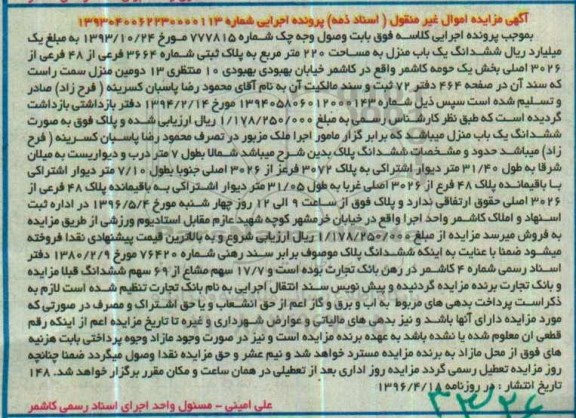 آگهی مزایده اموال غیر منقول ( اسناد ذمه) پرونده اجرایی شماره ۱۳۹۳۰۴۰۰۶۲۲۳۰۰۰۰۱۱۳
بموجب پرونده اجرایی کلاسه فوق بابت وصول وجه چک شماره ۷۷۷۸۱۵ مورخ ۱۳۹۳/۱۰/۲۴ به مبلغ یک
میلیارد ریال ششدانگ یک باب منزل به مساحت ۲۲۰ متر مربع به پلاک ثبتی شماره ۳۶۶۴ فرعی از ۴۸ فرعی از
۳۰۲۶ اصلی بخش یک حومه کاشمر واقع در کاشمر خیابان بهبودی بهبودی ۱۰ منتظری ۱۳ دومین منزل سمت راست
که سند آن در صفحه ۴۶۴ دفتر ۷۲ ثبت و سند مالکیت آن به نام آقای محمود رضا پاسبان کسرینه ( فرح زاد) صادر
و تسلیم شده است سپس ذیل شماره ۱۳۹۴۰۵۸۰۶۰۱۲۰۰۰۱۴۳ مورخ ۱۳۹۴/۲/۱۴ دفتر بازداشتی بازداشت
گردیده است که طبق نظر کارشناس رسمی به مبلغ ۱/۱۷۸/۲۵۰/۰۰۰ ریال ارزیابی شده و پلاک فوق به صورت
ششدانگ یک باب منزل میباشد که برابر گزار مامور اجرا ملک مزبور در تصرف محمود رضا پاسبان کسرینه ( فرح
زاد) میباشد حدود و مشخصات ششدانگ پلاک بدین شرح میباشد شمالا بطول ۷ متر درب و دیواریست به میلان
شرقا به طول ۳۱/۴۰ متر دیوار اشتراکی به پلاک ۳۰۷۲ فرعی از ۳۰۲۶ اصلی جنوبا بطول ۷/۱۰ متر دیوار اشتراکی
با باقیمانده پلاک ۴۸ فرع از ۳۰۲۶ اصلی غربا به طول ۳۱/۰۵ متر دیوار اشتراکی به باقیمانده پلاک ۴۸ فرعی از
۳۰۲۶ اصلی حقوق ارتفاقی ندارد و پلاک فوق از ساعت ۹ الی ۱۲ روز چهار شنبه مورخ ۱۳۹۶/۵/۴ در اداره ثبت
اسنهاد و املاک کاشمر واحد اجرا واقع در خیابان خرمشهر کوچه شهید عازم مقابل استادیوم ورزشی از طریق مزایده
به فروش میرسد مزایده از مبلغ ۱/۱۷۸/۲۵۰/۰۰۰ ریال ارزیابی شروع و به بالاترین قیمت پیشنهادی نقدا فروخته
میشود ضمنا با عنایت به اینکه ششدانگ پلاک موصوف برابر سند رهنی شماره ۷۶۴۲۰ مورخ ۱۳۸۰/۲/۹ دفتر
اسناد رسمی شماره ۴ کاشمر در رهن بانک تجارت بوده است و ۱۷/۷ سهم مشاع از ۶۹ سهم ششدانگ قبلا مزایده
و بانک تجارت برنده مزایده گردنیده و پیش نویس سند انتقال اجرایی به نام بانک تجارت تنظیم شده است لازم به
ذکراست پرداخت بدهی های مربوط به اب و برق و گاز اعم از حق انشعاب و یا حق اشتراک و مصرف در صورتی که
مورد مزایده دارای آنها باشد و نیز بدهی های مالیاتی و عوارض شهرداری و غیره تا تاریخ مزایده اعم از اینکه رقم
قطعی ان معلوم شده یا نشده باشد به عهده برنده مزایده است و نیز در صورت وجود مازاد وجوه پرداختی بابت هزینه
های فوق از محل مازاد به برنده مزایده مسترد خواهد شد و نیم عشر و حق مزایده نقدا وصول میگردد ضمنا چنانچه
روز مزایده تعطیل رسمی گردد مزایده روز اداری بعد از تعطیلی در همان ساعت و مکان مقرر برگزار خواهد شد. ۱۴۸
تاریخ انتشار : در روزنامه ۱۳۹۶/۴/۱۸
علی امینی - مسئول واحد اجرای اسناد رسمی کاشمر